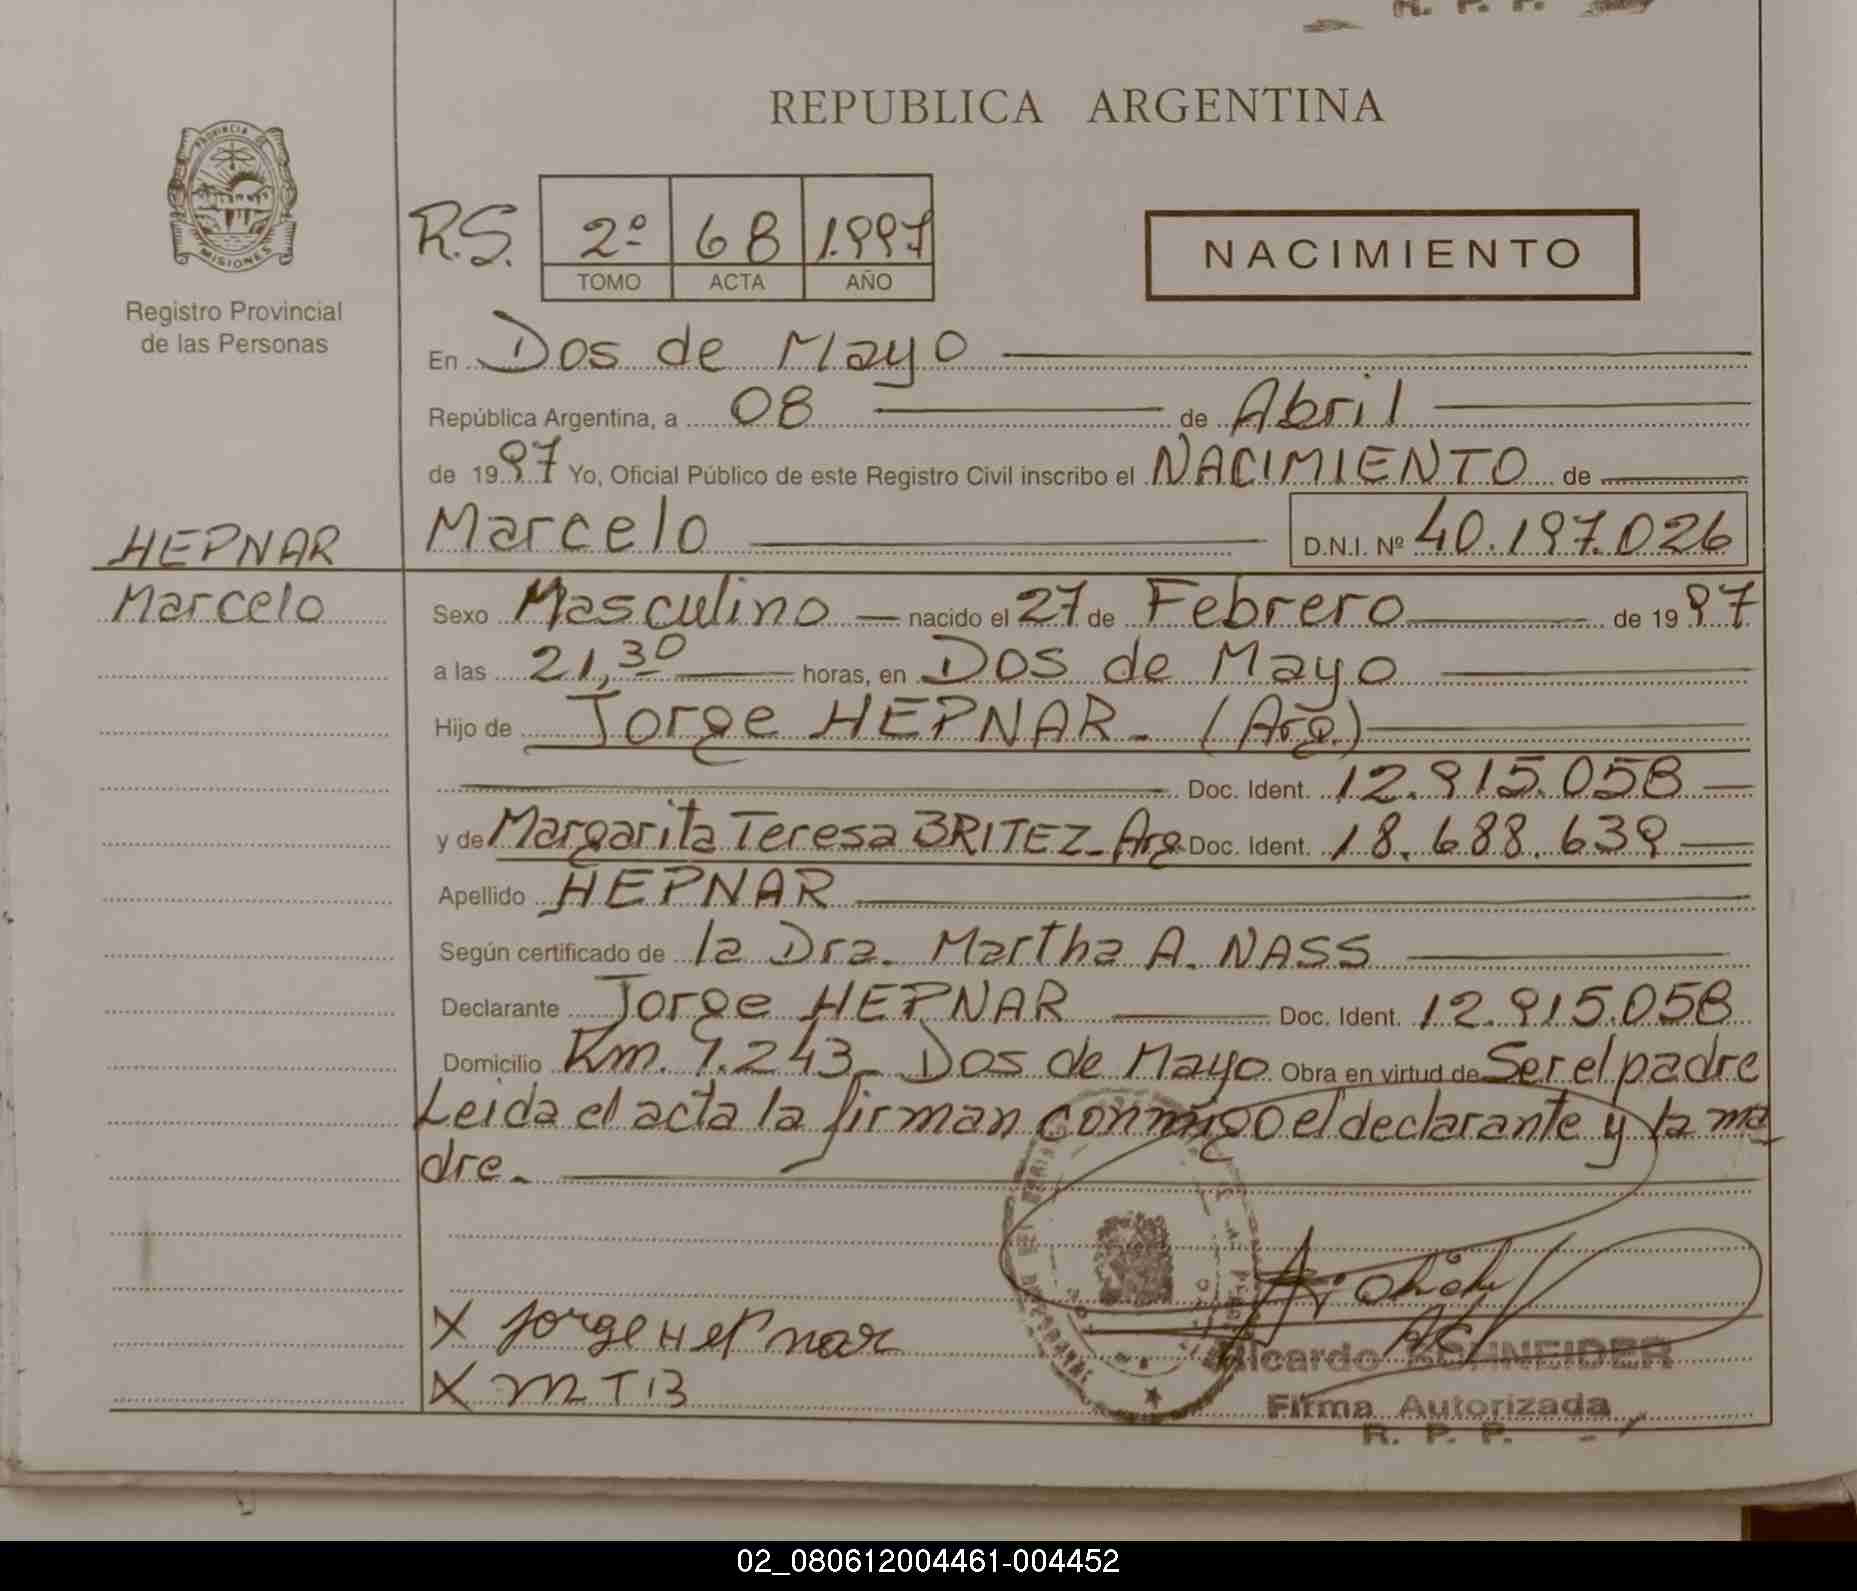 R. P. P.
REPUBLICA ARGENTINA
PROVINCIA
MISIONES
Registro Provincial
de las Personas
R.S. 2º 68 1.997
TOMO ACTA AÑO
NACIMIENTO
En Dos de Mayo
República Argentina, a 08 de Abril
de 1997 Yo, Oficial Público de este Registro Civil inscribo el NACIMIENTO de
HEPNAR Marcelo D.N.I. Nº 40.197.026
Marcelo Sexo Masculino nacido el 27 de Febrero de 1997
a las 21,30 horas, en Dos de Mayo
Hijo de Jorge HEPNAR - (Arg.)
Doc. Ident. 12.915.058
y de Margarita Teresa BRITEZ - Arg. Doc. Ident. 18.688.639
Apellido HEPNAR
Según certificado de la Dra. Martha A. NASS
Declarante Jorge HEPNAR Doc. Ident. 12.915.058
Domicilio Km. 1.243 - Dos de Mayo Obra en virtud de Ser el padre
Leida el acta la firman conmigo el declarante y la ma
dre.
X Jorge HepNar
X MTB
Ricardo SCHNEIDER
Firma Autorizada
R. P. P.
02_080612004461-004452